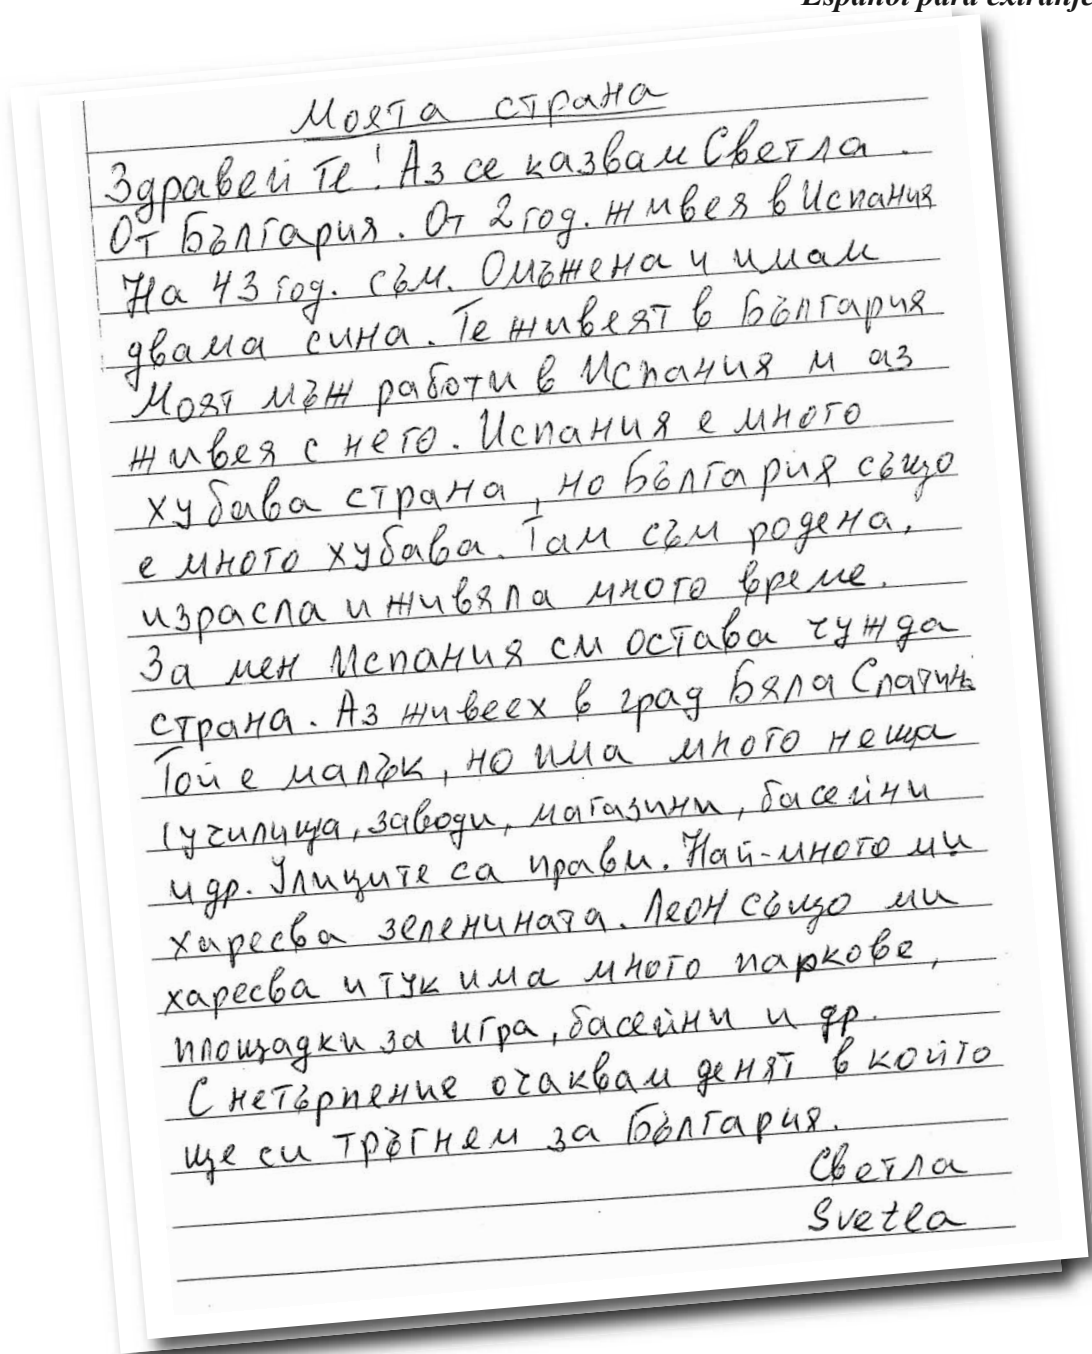 Español para extranje
Моята страна
Здравейте! Аз се казвам Светла.
От България. От 2 год. живея в Испания
На 43 год. съм. Омъжена и имам
двама сина. Те живеят в България
Моят мъж работи в Испания и аз
живея с него. Испания е много
хубава страна, но България също
е много хубава. Там съм родена,
израсла и живяла много време.
За мен Испания си остава чужда
страна. Аз живеех в град Бяла Слатина
Той е малък, но има много неща
(училища, заводи, магазини, басейни
и др. Улиците са прави. Най-много ми
харесва зеленината. Леон също ми
харесва и тук има много паркове,
площадки за игра, басейни и др.
С нетърпение очаквам денят в който
ще си тръгнем за България.
Светла
Svetla